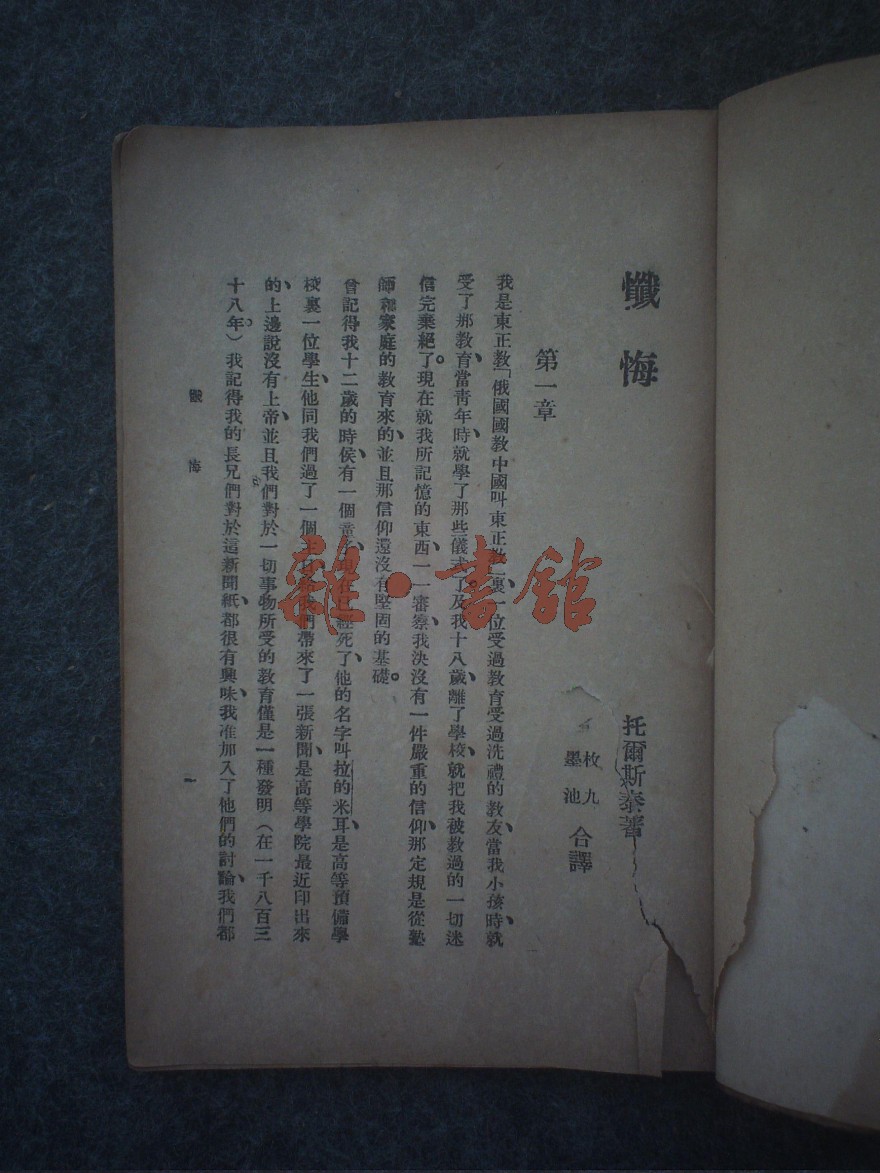 懺悔
托爾斯泰著
枚九
墨池
合譯
第一章
我是東正教「俄國國教中國叫東正教」裏一位受過教育受過洗禮的教友、當我小孩時、就
受了那教育、當靑年時、就學了那些儀式、了及我十八歲、離了學校、就把我被教過的一切迷
信完棄絕了。現在就我所記憶的東西、一一審察、我決沒有一件嚴重的信仰、那定規是從塾
師和家庭的教育來的、並且那信仰還沒有堅固的基礎。
曾記得我十二歲的時侯、有一個童子、死了、他的名字叫拉的米耳、是高等預備學
校裏一位學生、他同我們過了一個我們帶來了一張新聞、是高等學院最近印出來
的、上邊說沒有上帝、並且我們對於一切事物所受的教育僅是一種發明（在一千八百三
十八年。）我記得我的長兄們對於這新聞紙、都很有興味、我准加入了他們的討論、我們都
懺悔
一
雜·書館